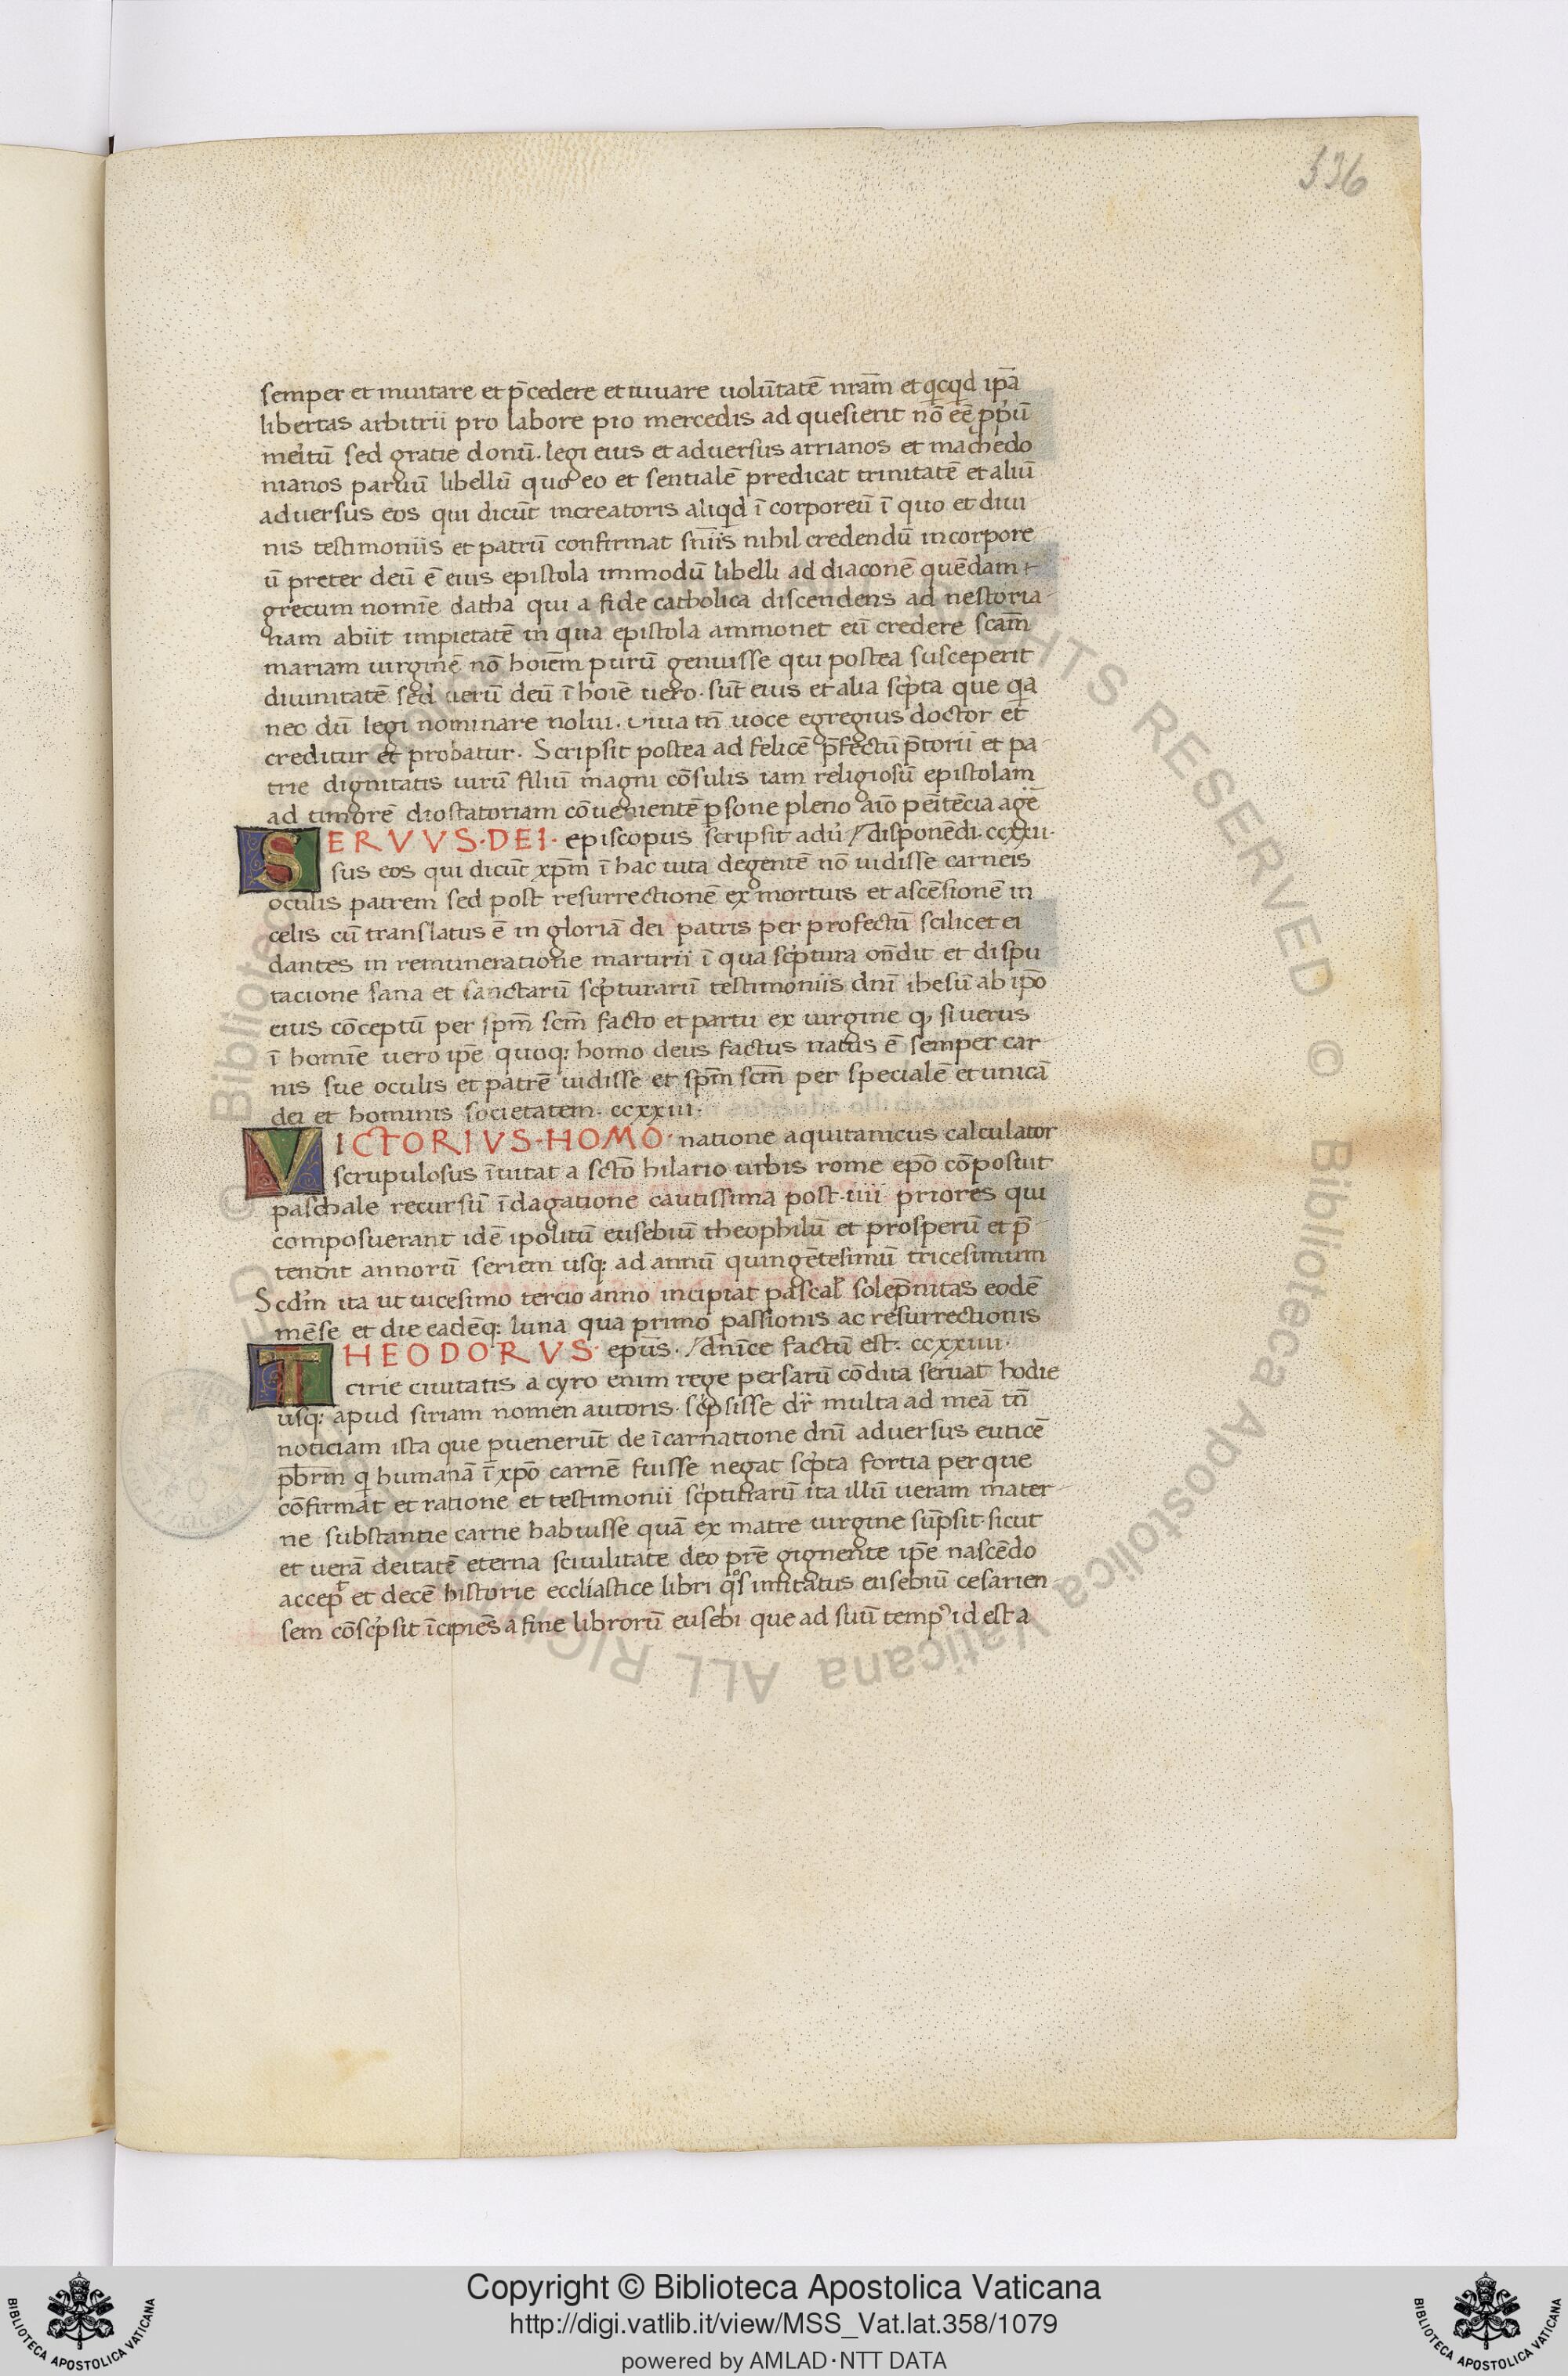 536
semper et inuitare et p̄cedere et iuuare uolūtatē nr̄am et qcqd ip̄a
libertas arbitrii pro labore pio mercedis ad quesierit nō eē ꝓpiū
meitū sed gratie donū. legi eius et aduersus arrianos et machedo
nianos paruū libellū quo eo et sentialē predicat trinitatē et aliū
aduersus eos qui dicūt increatoris aliqd ī corporeū ī quo et diui
nis testimoniis et patrū confirmat sniīs nihil credendū incorpore
ū preter deū ē eius epistola immodū libelli ad diaconē quēdam
grecum nomīe datha qui a fide catholica discendens ad nestoria
nam abiit impietatē in qua epistola ammonet eū credere scam̄
mariam uirginē nō hoiēm purū genuisse qui postea susceperit
diuinitatē sed uerū deū ī hoiē uero. sūt eius et alia scpta que qa
nec dū legi nominare nolui. uiua tn̄ uoce egregius doctor et
creditur et probatur. Scripsit postea ad felicē p̄fectū p̄torii et pa
trie dignitatis uirū filiū magni cōsulis iam religiosū epistolam
ad timorē diostatoriam cōuenientē ꝑsone pleno aīo penitēcia agē
SERVVS·DEI· episcopus scripsit adū /disponēdi. ccxxii·
sus eos qui dicūt xp̄m ī hac uita degentē nō uidisse carneis
oculis patrem sed post resurrectionē ex mortuis et ascēsionē in
celis cū translatus ē in gloriā dei patris per profectū scilicet ei
dantes in remuneratione martirii ī qua scptura ondit et dispu
tacione sana et sanctarū scpturarū testimoniis dnī ihesū ab ipō
eius cōceptū per spm̄ scm̄ facto et partu ex uirgine q, si uerus
ī homīe uero ipē quoq: homo deus factus natus ē semper car
nis sue oculis et patrē uidisse et spm̄ scm̄ per specialē et unicā
dei et hominis societatem. ccxxiii.
VICTORIVS·HOMO· natione aquitanicus calculator
scrupulosus īuitat a sctō hilario urbis rome epō cōposuit
paschale recursū īdagatione cautissima post·iiii· priores qui
composuerant idē ipolitū eusebiū theophilū et prosperū et p̄
tendit annorū seriem usq: ad annū quingētesimū tricesimum
Scdm̄ ita ut uicesimo tercio anno incipiat pascal' solep̄nitas eodē
mēse et die eadēq: luna qua primo passionis ac resurrectionis
THEODORVS· ep̄us. /dn̄ice factū est. ccxxiiii·
cirie ciuitatis a cyro enim rege persarū cōdita seruat hodie
usq: apud siriam nomen autoris. scpsisse dr̄ multa ad meā tn̄
noticiam ista que ꝑuenerūt de īcarnatione dnī aduersus euticē
pbrm̄ q humanā ī xpō carnē fuisse negat scpta fortia per que
cōfirmat et ratione et testimonii scpturarū ita illū ueram mater
ne substantie carne habuisse quā ex matre uirgine sūpsit. sicut
et uerā deitatē eterna sciuulitate deo prē gignente ipē nascēdo
accepᵗ et decē historie eccliastice libri qos imitatus eusebiū cesarien
sem cōscpsit īcipiēs a fine librorū eusebi que ad suū temp' id est a
© Biblioteca Apostolica Vaticana ALL RIGHTS RESERVED
Copyright © Biblioteca Apostolica Vaticana
http://digi.vatlib.it/view/MSS_Vat.lat.358/1079
powered by AMLAD·NTT DATA
BIBLIOTECA APOSTOLICA VATICANA
BIBLIOTECA APOSTOLICA VATICANA